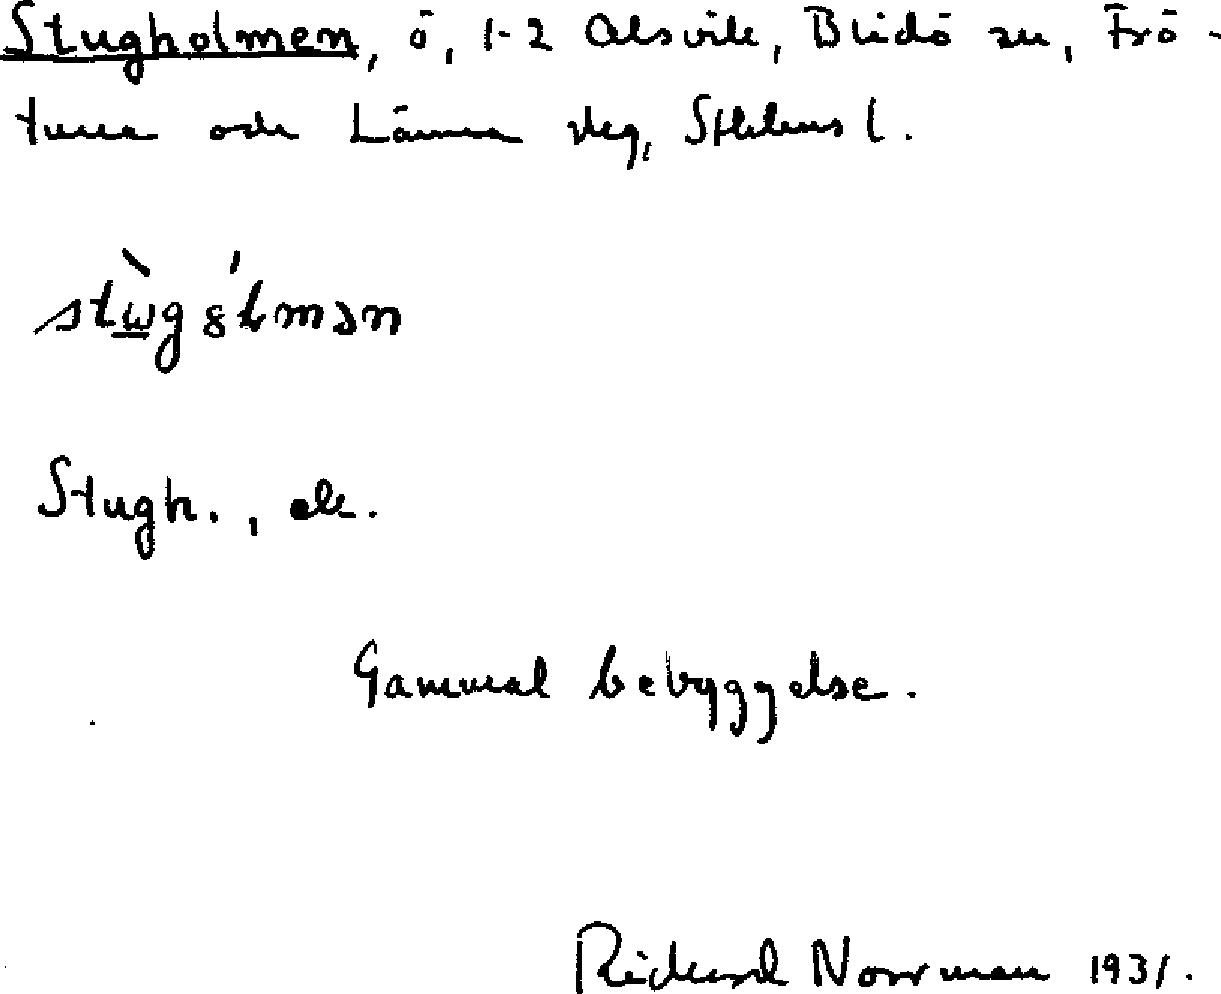 Stugholmen, ö, 1-2 Alsvik, Blidö sn, Frö-
tuna och Länna slg, Sthlms l.
stὼ̲gȣ́ɫmən
Stugh., ek.
Gammal bebyggelse.
Rickard Norrman 1931.